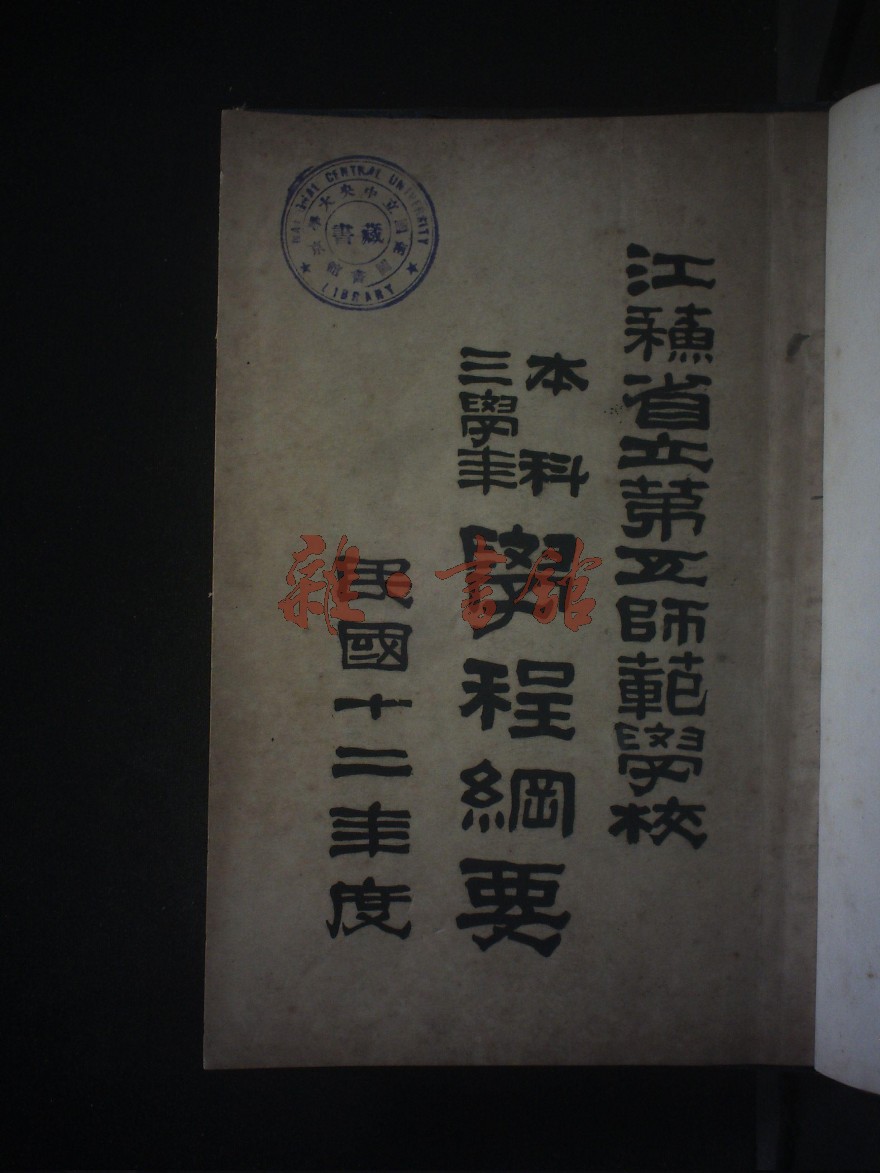 江蘇省立第五師範學校
本科
三學年
學程綱要
民國十二年度
NATIONAL CENTRAL UNIVERSITY
國立中央大學
區圖書館
藏書
LIBRARY
雜·書館